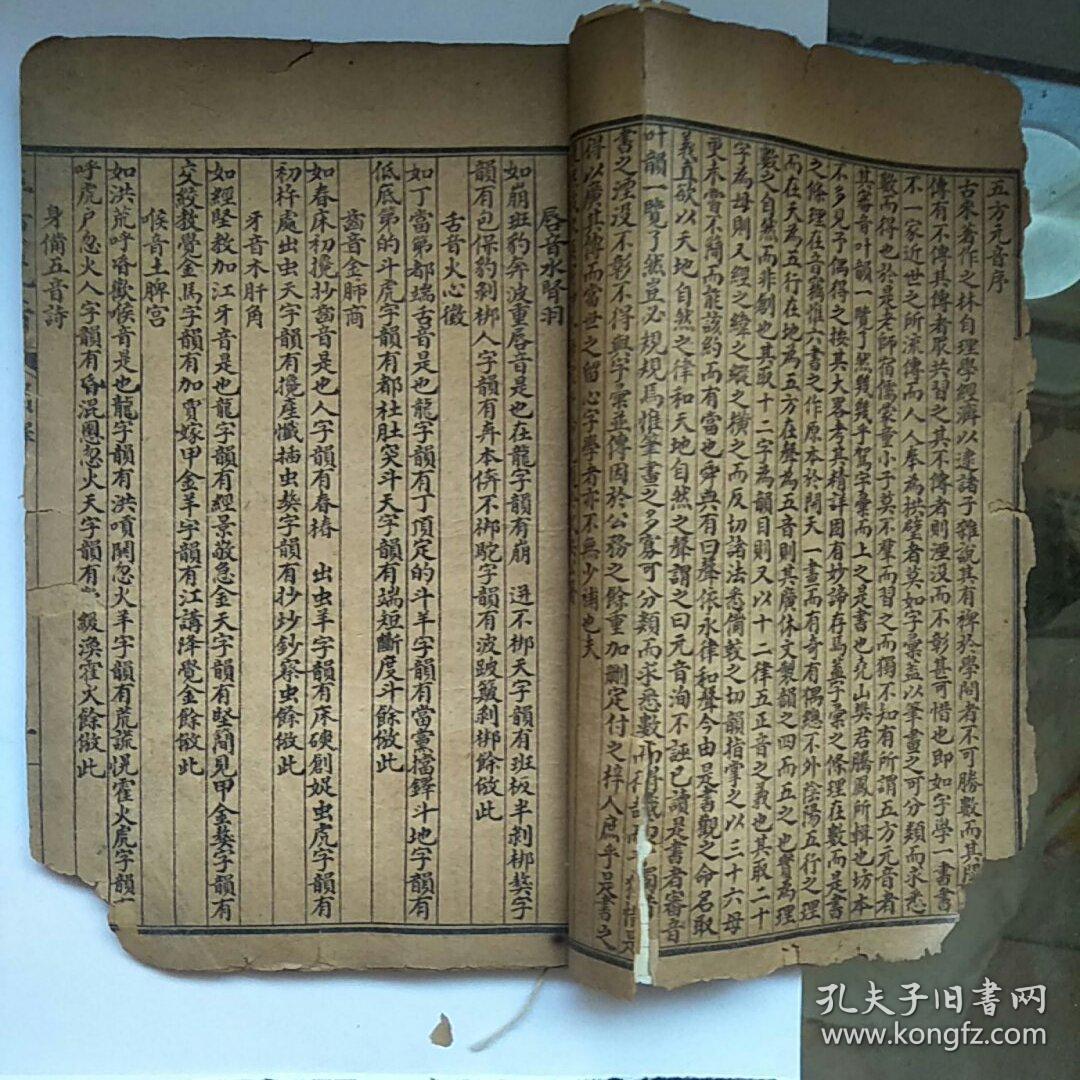 五方元音序
古來著作之林自理學經濟以逮諸子雜說其有裨於學問者不可勝數而其間
傳有不傳其傳者眾共習之其不傳者則湮沒而不彰甚可惜也即如字學一書書
不一家近世之所流傳而人人奉為拱璧者莫如字彙蓋以筆畫之可分類而求悉
數而得也於是老師宿儒蒙童小子莫不羣而習之而獨不知有所謂五方元音者
其審音叶韻一覽了然幾幾乎駕字彙而上之是書也堯山樊君騰鳳所輯也坊本
不多見予偶得之按其大畧考其精詳固有妙諦存焉蓋字彙之條理在數而是書
之條理在音竊惟六書之作原本於開天一畫而有奇有偶總不外陰陽五行之理
而在天為五行在地為五方在聲為五音則其廣休文製韻之四而五之也實為理
數之自然而非創也其取十二字為韻目則又以十二律五正音之義也其取二十
字為母則又經之緯之縱之橫之而反切諸法悉備較之切韻指掌之以三十六母
更木實不簡而能該約而有當也舜典有曰聲依永律和聲今由是書觀之命名取
義直欲以天地自然之律和天地自然之聲謂之曰元音洵不誣已讀是書者審音
叶韻一覽了然豈必規規焉惟筆畫之多寡可分類而求悉數而得哉而
書之湮沒不彰不得與字彙並傳因於公務之餘重加刪定付之梓人庶乎是書之
得以廣其傳而當世之留心字學者亦不無少補也夫
唇音水腎羽
如崩班豹奔波重唇音是也在龍字韻有崩 迸不梆天字韻有班板半剥梆獒字
韻有包保豹剥梆人字韻有奔本倴不梆駝字韻有波跛簸剥梆餘倣此
舌音火心徵
如丁當第都端舌音是也龍字韻有丁頂定的斗羊字韻有當黨擋鐸斗地字韻有
低底第的斗虎字韻有都杜肚突斗天字韻有端短斷度斗餘倣此
齒音金肺商
如春床初攙抄齒音是也人字韻有春椿 出虫羊字韻有床磢創娖虫虎字韻有
初杵處出虫天字韻有攙產懺插虫獒字韻有抄炒鈔察虫餘倣此
牙音木肝角
如經堅教加江牙音是也龍字韻有經景敬急金天字韻有堅簡見甲金獒字韻有
交絞教覺金馬字韻有加賈嫁甲金羊字韻有江講降覺金餘倣此
喉音土脾宮
如洪荒呼昏歡喉音是也龍字韻有洪嗊鬨忽火羊字韻有荒謊恍霍火虎字韻
呼虎户忽火人字韻有昏混慁忽火天字韻有 緩渙霍火餘倣此
身備五音詩